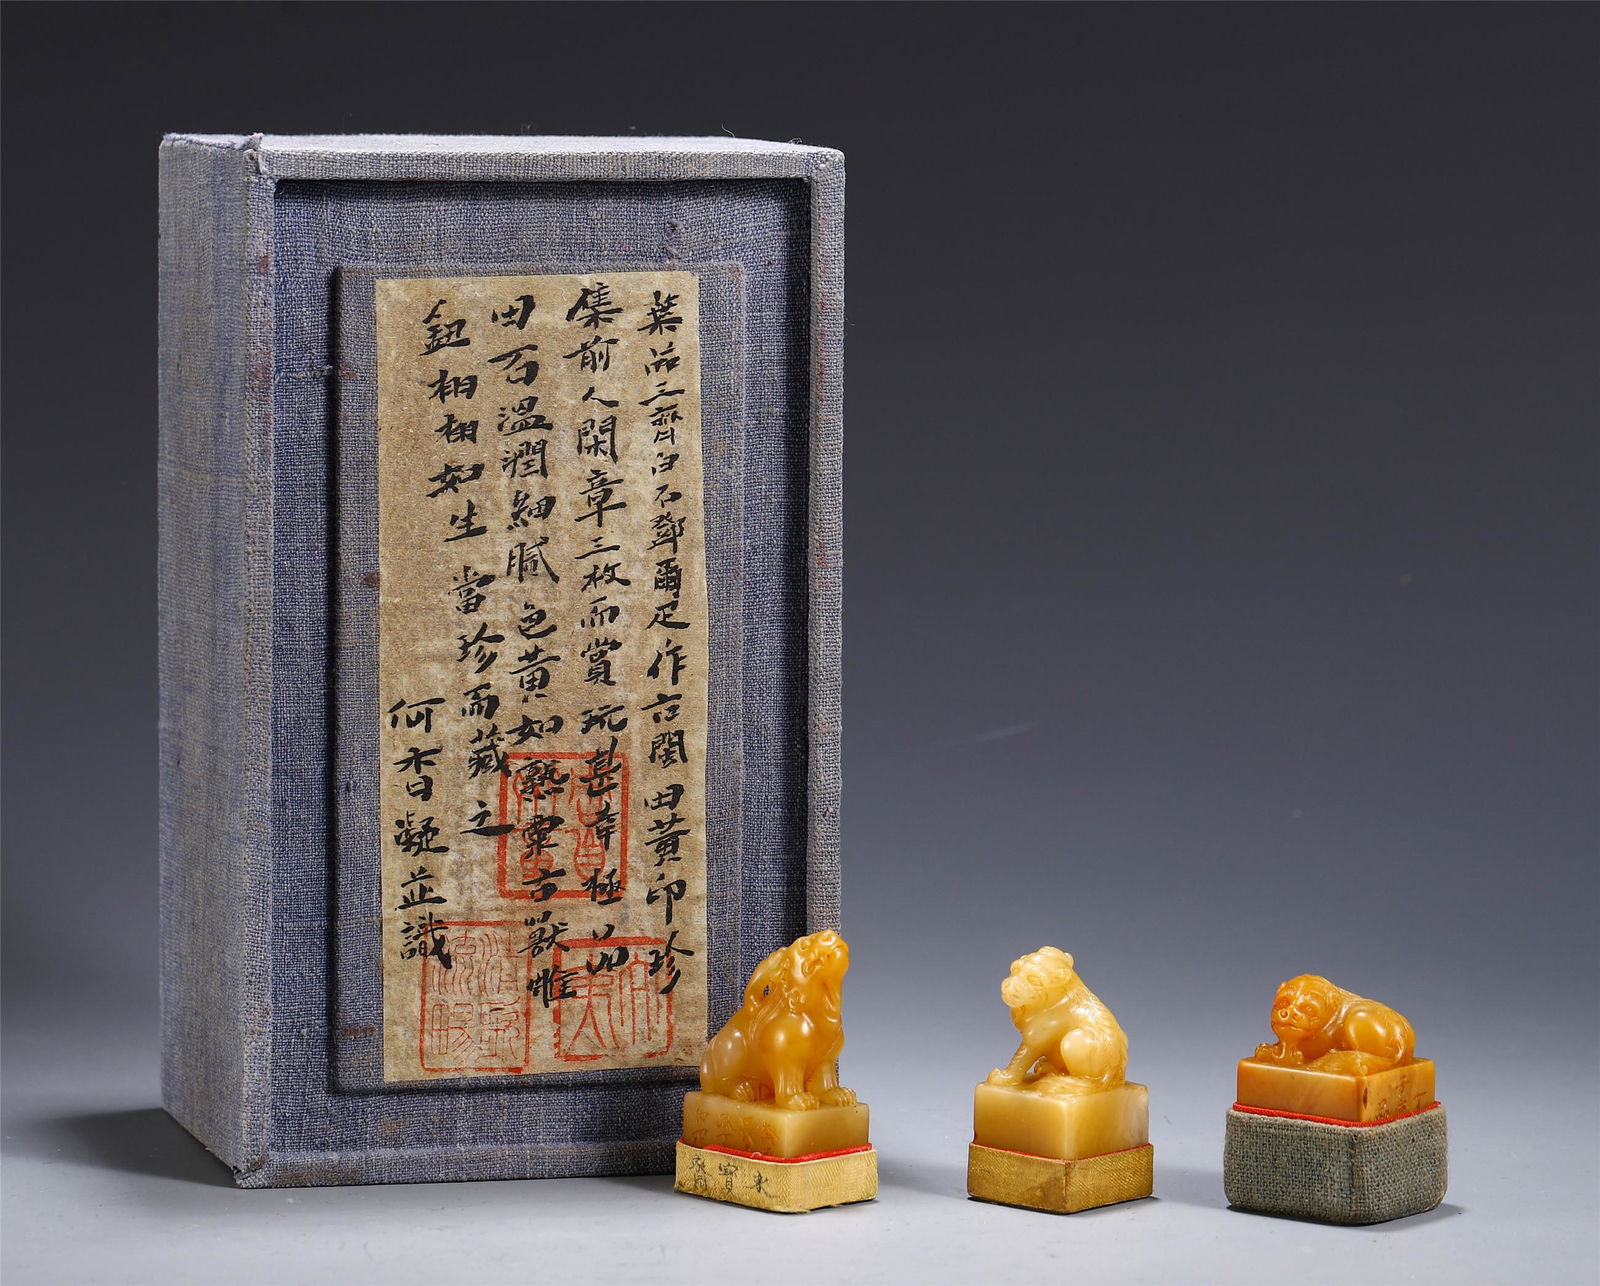 葉品三齊白石鄧爾疋作古閩田黃印珍
集前人閑章三枚而賞玩甚幸極品
田石溫潤細膩色黃如熟栗古獸惟
鈕栩栩如生當珍而藏之
何香凝並識
來寶齋